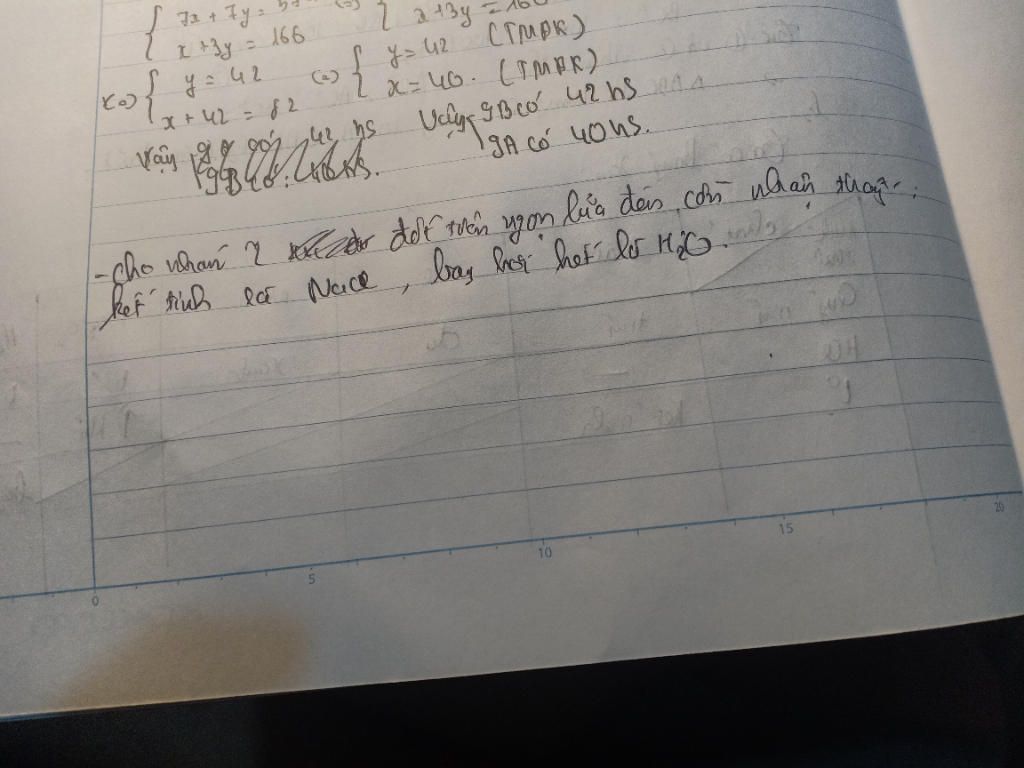 { 7x + 7y = (=) { x + 3y = 166
x + 3y = 166
(=) { y = 42 (=) { y = 42 (TMĐK)
x + 42 = 82 x = 40. (TMĐK)
Vậy 42 hs Vậy 9B có 42 hs
9A có 40 hs.
- cho nhóm 2 đốt trên ngọn lửa đèn cồn nhận thấy:
kết tinh là NaCl, bay hơi hết là H₂O.
0 5 10 15 20